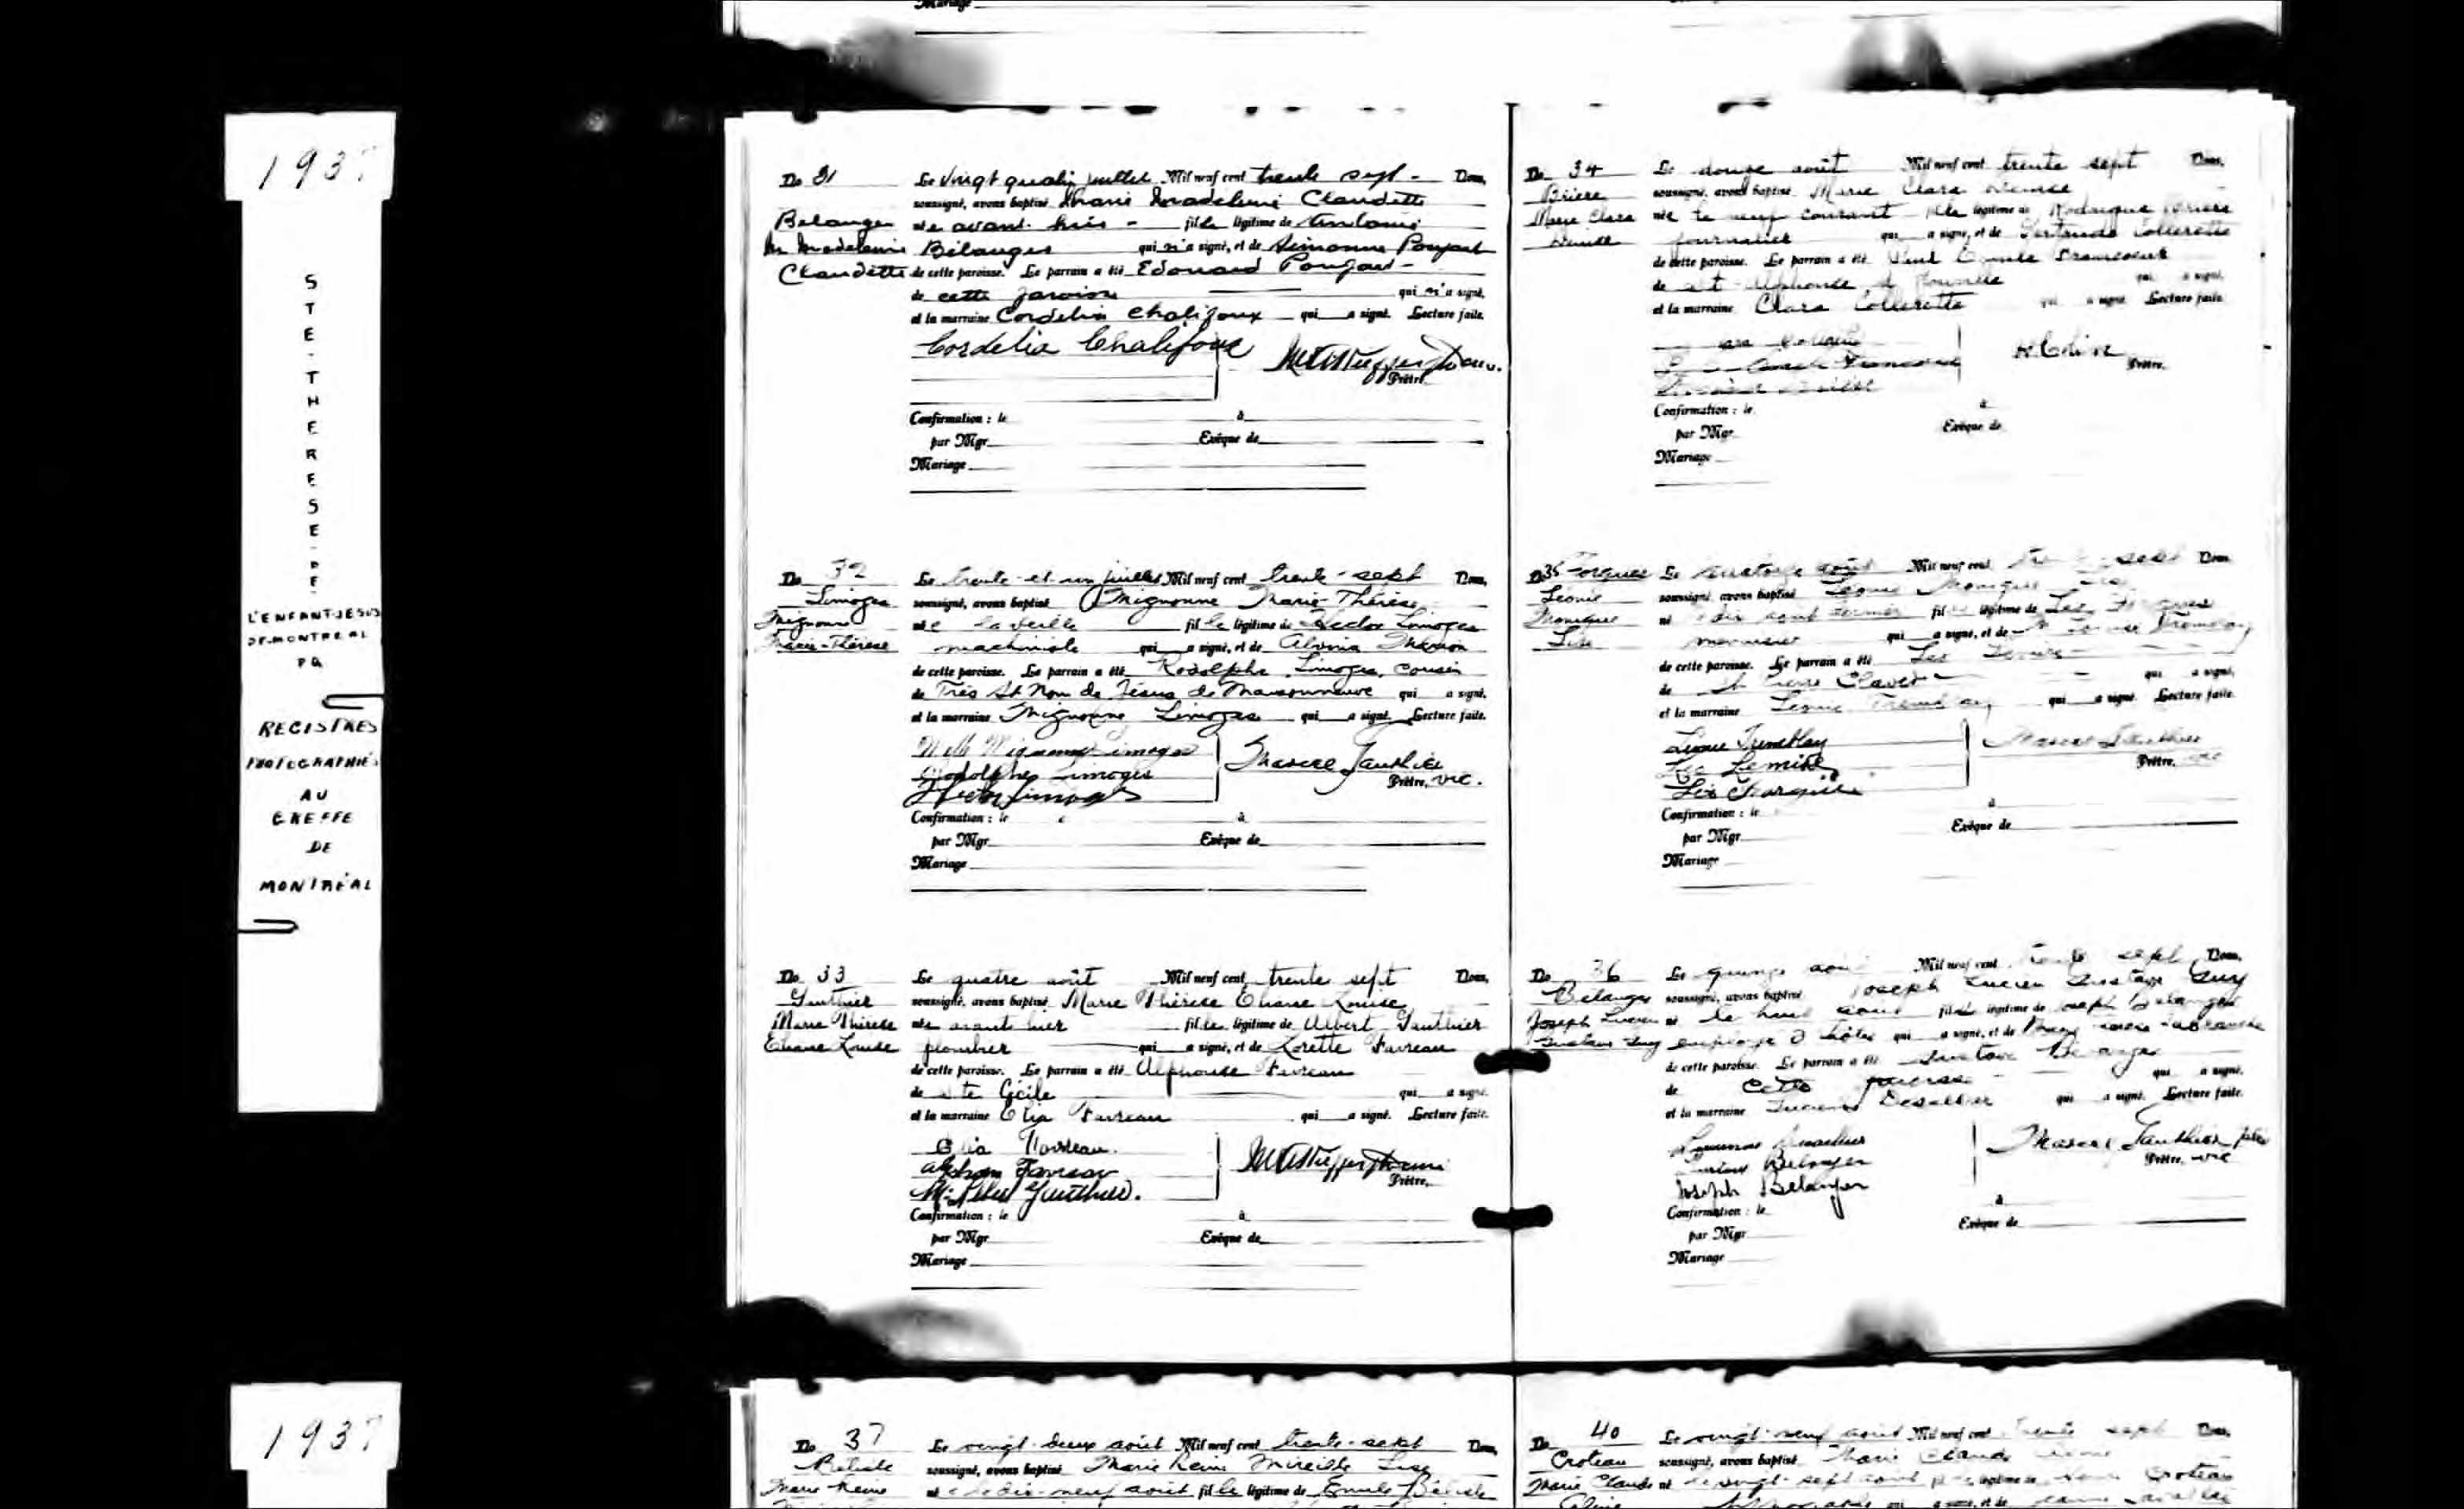 Mariage
1937
STE-THERESE-DE
L'ENFANT-JESUS
DE-MONTREAL
P Q
REGISTRES
PHOTOGRAPHIÉS
AU
GREFFE
DE
MONTRÉAL
1937
No 31
Belanger
M Madeleine
Claudette
Le vingt quatre juillet Mil neuf cent trente sept - Nous,
soussigné, avons baptisé Marie Madeleine Claudette
née avant-hier - fille légitime de Antonio
Bélanger qui n'a signé, et de Simonne Poupart
de cette paroisse. Le parrain a été Edouard Poupart -
de cette paroisse qui n'a signé,
et la marraine Cordelia Chalifoux qui a signé. Lecture faite.
Cordelia Chalifoux
Prêtre.
Confirmation : le à
par Mgr Evêque de
Mariage
No 32
Limoges
Mignonne
Marie-Thérèse
Le trente-et-un juillet Mil neuf cent trente-sept Nous,
soussigné, avons baptisé Mignonne Marie-Thérèse
née la veille fille légitime de Hector Limoges
machiniste qui a signé, et de Alvina
de cette paroisse. Le parrain a été Rodolphe Limoges, cousin
de Très St Nom de Jésus de Maisonneuve qui a signé,
et la marraine Mignonne Limoges qui a signé. Lecture faite.
Mlle Mignonne Limoges
Rodolphe Limoges
Hector Limoges
Marcel Gauthier
Prêtre, vic.
Confirmation : le à
par Mgr Evêque de
Mariage
No 33
Gauthier
Marie Thérèse
Eliane Louise
Le quatre août Mil neuf cent trente sept Nous,
soussigné, avons baptisé Marie Thérèse Eliane Louise
née avant hier fille légitime de Albert Gauthier
plombier qui a signé, et de Lorette Favreau
de cette paroisse. Le parrain a été Alphonse Favreau
de Ste Cécile qui a signé.
et la marraine Favreau qui a signé. Lecture faite.
Favreau
Alphonse Favreau
Gauthier.
Prêtre.
Confirmation : le à
par Mgr Evêque de
Mariage
No 34
Brière
Marie Clara
Denise
Le douze août Mil neuf cent trente sept Nous,
soussigné, avons baptisé Marie Clara Denise
née le neuf courant fille légitime de Rodrigue Brière
journalier qui a signé, et de Gertrude Collerette
de cette paroisse. Le parrain a été Paul Francoeur
de St Alphonse d' qui a signé,
et la marraine Clara Collerette qui a signé Lecture faite
Prêtre.
Confirmation : le à
par Mgr Evêque de
Mariage
No 35 Forgues
Léonie
Monique
Lise
Le quatorze août Mil neuf cent trente-sept Nous,
soussigné, avons baptisé Léonie Monique Lise
né août dernier fille légitime de Léo Forgues
menuisier qui a signé, et de Tremblay
de cette paroisse. Le parrain a été Léo
de St Pierre Claver qui a signé,
et la marraine Léonie Tremblay qui a signé. Lecture faite
Léonie Tremblay
Léo Lemire
Léo Forgues
Marcel Gauthier
Prêtre, vic
Confirmation : le à
par Mgr Evêque de
Mariage
No 36
Bélanger
Joseph Lucien
Gustave Guy
Le quinze août Mil neuf cent trente sept Nous,
soussigné, avons baptisé Joseph Lucien Gustave Guy
né le huit août fils légitime de Joseph Bélanger
employé d'hôtel qui a signé, et de Labranche
de cette paroisse. Le parrain a été Gustave Bélanger
de cette paroisse qui a signé,
et la marraine qui a signé. Lecture faite.
Belanger
Joseph Belanger
Marcel Gauthier ptre
Prêtre, vic
Confirmation : le à
par Mgr Evêque de
Mariage
No 37
Bélisle
Marie Reine
Le vingt-deux août Mil neuf cent trente-sept Nous,
soussigné, avons baptisé Marie Reine Mireille Lise
née le dix-neuf août fille légitime de Emile Bélisle
No 40
Croteau
Marie Claude
Le vingt-neuf août Mil neuf cent trente sept Nous,
soussigné, avons baptisé Marie Claude
né le vingt-sept août fille légitime de Croteau